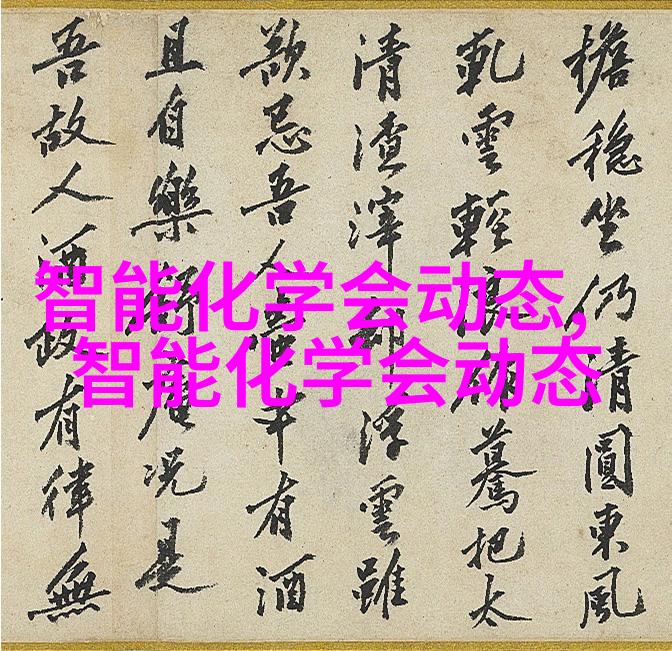 檐穩坐仍清圓東風
軋雲輕浪驀把太
清渣滓浮雲雖
歎忌吾人半有酒
且自樂況是
吾故人酒政有律無
智能化学会动态,
智能化学会动态